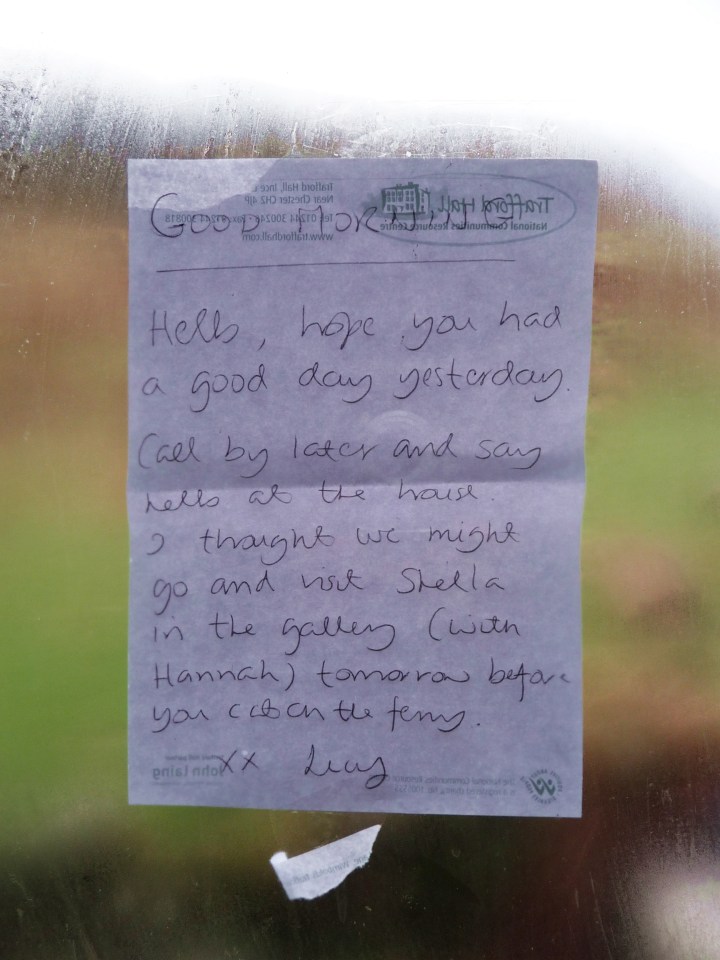 Trafford Hall, Ince L
Near Chester CH2 4JP
Tel 01244 300246 - Fax 01244 300818
www.traffordhall.com
Trafford Hall
National Communities Resource Centre
GOOD MORNING
Hello, hope you had
a good day yesterday.
Call by later and say
hello at the house.
I thought we might
go and visit Shella
in the gallery (with
Hannah) tomorrow before
you catch the ferry.
xx Lucy
John Laing
The National Communities Resource
is a registered charity No.